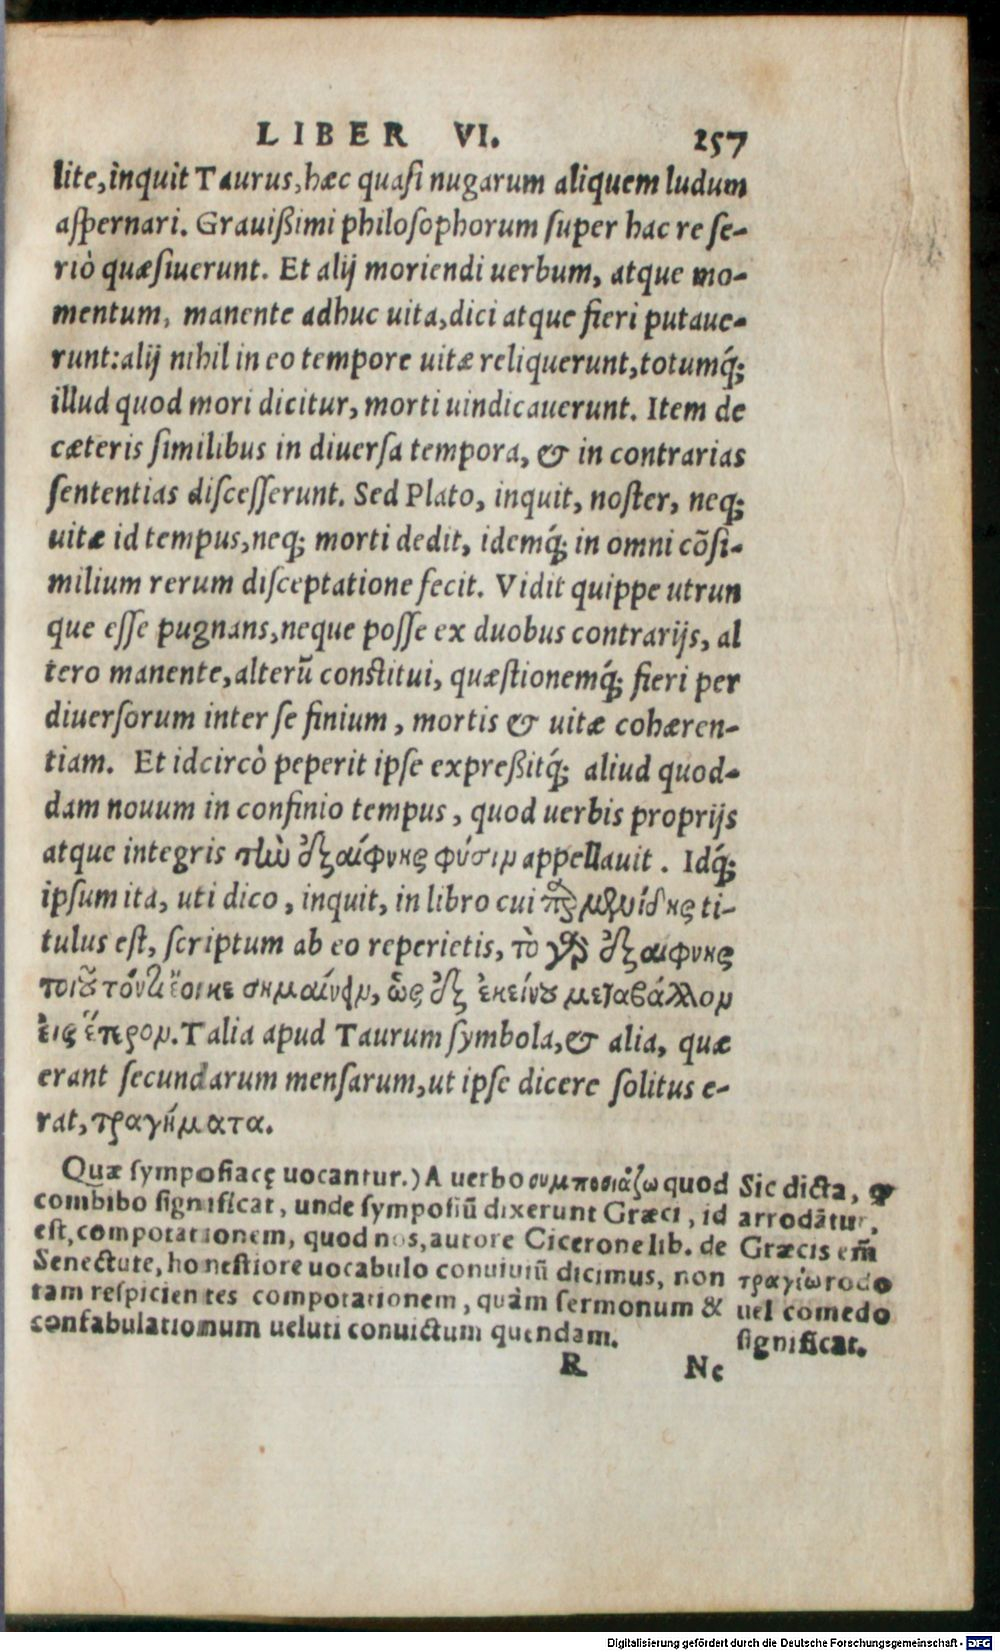 LIBER VI. 257
lite, inquit Taurus, hæc quasi nugarum aliquem ludum
aspernari. Grauißimi philosophorum super hac re se-
riò quæsiuerunt. Et alij moriendi uerbum, atque mo-
mentum, manente adhuc uita, dici atque fieri putaue-
runt: alij nihil in eo tempore uitæ reliquerunt, totumq́;
illud quod mori dicitur, morti uindicauerunt. Item de
cæteris similibus in diuersa tempora, & in contrarias
sententias discesserunt. Sed Plato, inquit, noster, neq;
uitæ id tempus, neq; morti dedit, idemq́; in omni cõsi-
milium rerum disceptatione fecit. Vidit quippe utrun
que esse pugnans, neque posse ex duobus contrarijs, al
tero manente, alterũ constitui, quæstionemq́; fieri per
diuersorum inter se finium, mortis & uitæ cohæren-
tiam. Et idcircò peperit ipse expreßitq́; aliud quod-
dam nouum in confinio tempus, quod uerbis proprijs
atque integris τὴν ἐξαίφνης φύσιν appellauit. Idq́;
ipsum ita, uti dico, inquit, in libro cui παρμενίδης ti-
tulus est, scriptum ab eo reperietis, τὸ γὰρ ἐξαιφνης
τοιοῦτόν τι ἔοικε σημαίνειν, ὡς ἐξ ἐκείνου μεταβάλλον
εἰς ἕτερον. Talia apud Taurum symbola, & alia, quæ
erant secundarum mensarum, ut ipse dicere solitus e-
rat, τραγήματα.
Quæ symposiacę uocantur.) A uerbo συμποσιάζω quod
combibo significat, unde symposiũ dixerunt Græci, id
est, compotationem, quod nos, autore Cicerone lib. de
Senectute, honestiore uocabulo conuiuiũ dicimus, non
tam respicientes compotationem, quàm sermonum &
confabulationum ueluti conuictum quendam.
Sic dicta, ꝙ
arrodãtur,
Græcis em̃
τραγίω rodo
uel comedo
significat.
R Ne
Digitalisierung gefördert durch die Deutsche Forschungsgemeinschaft - DFG